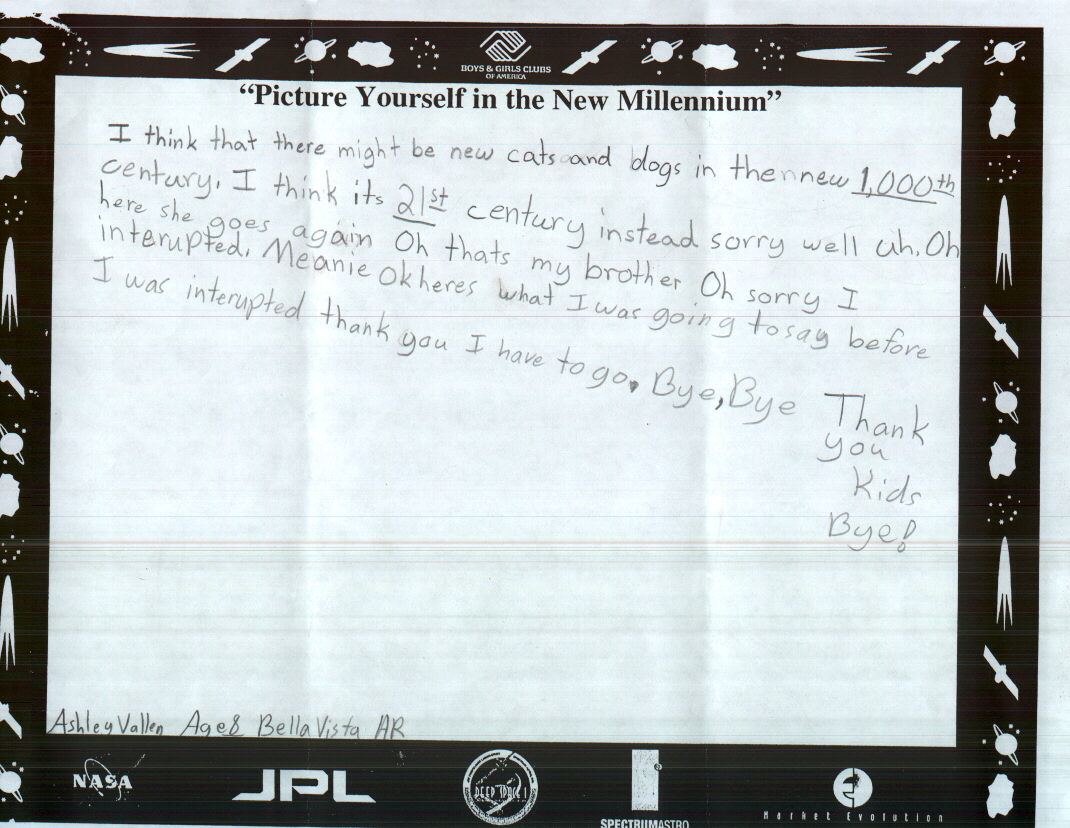 BOYS & GIRLS CLUBS
OF AMERICA
“Picture Yourself in the New Millennium”
I think that there might be new cats and blogs in the new 1,000th
century. I think its 21st century instead sorry well uh. Oh
here she goes again Oh thats my brother Oh sorry I
interupted. Meanie Ok heres what I was going to say before
I was interupted thank you I have to go. Bye, Bye
Thank
you
Kids
Bye!
Ashley Vallen Age 8 Bella Vista AR
NASA
JPL
DEEP SPACE 1
SPECTRUMASTRO
Market Evolution